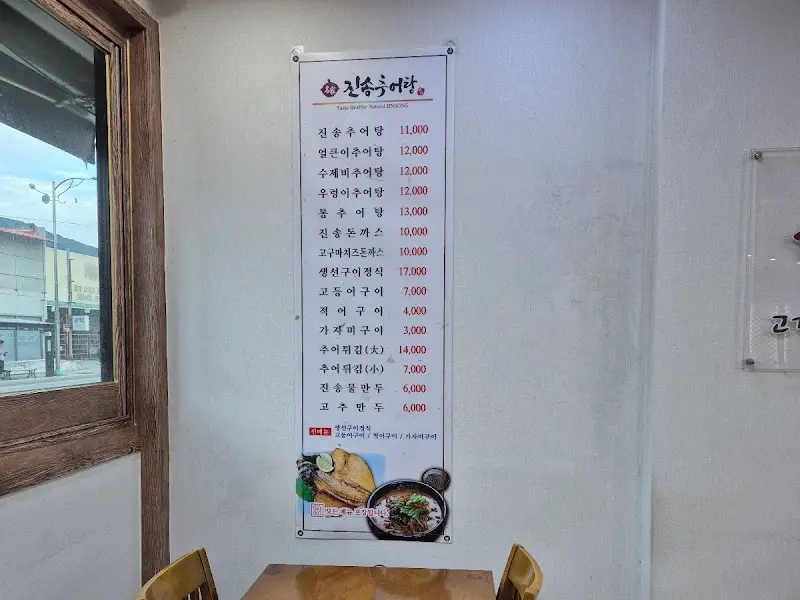 진송추어탕
Tasty Healthy Natural JINSONG
진송추어탕 11,000
얼큰이추어탕 12,000
수제비추어탕 12,000
우렁이추어탕 12,000
통추어탕 13,000
진송돈까스 10,000
고구마치즈돈까스 10,000
생선구이정식 17,000
고등어구이 7,000
적어구이 4,000
가자미구이 3,000
추어튀김(大) 14,000
추어튀김(小) 7,000
진송물만두 6,000
고추만두 6,000
생선구이정식
고등어구이 / 적어구이 / 가자미구이
모든 메뉴 포장됩니다.